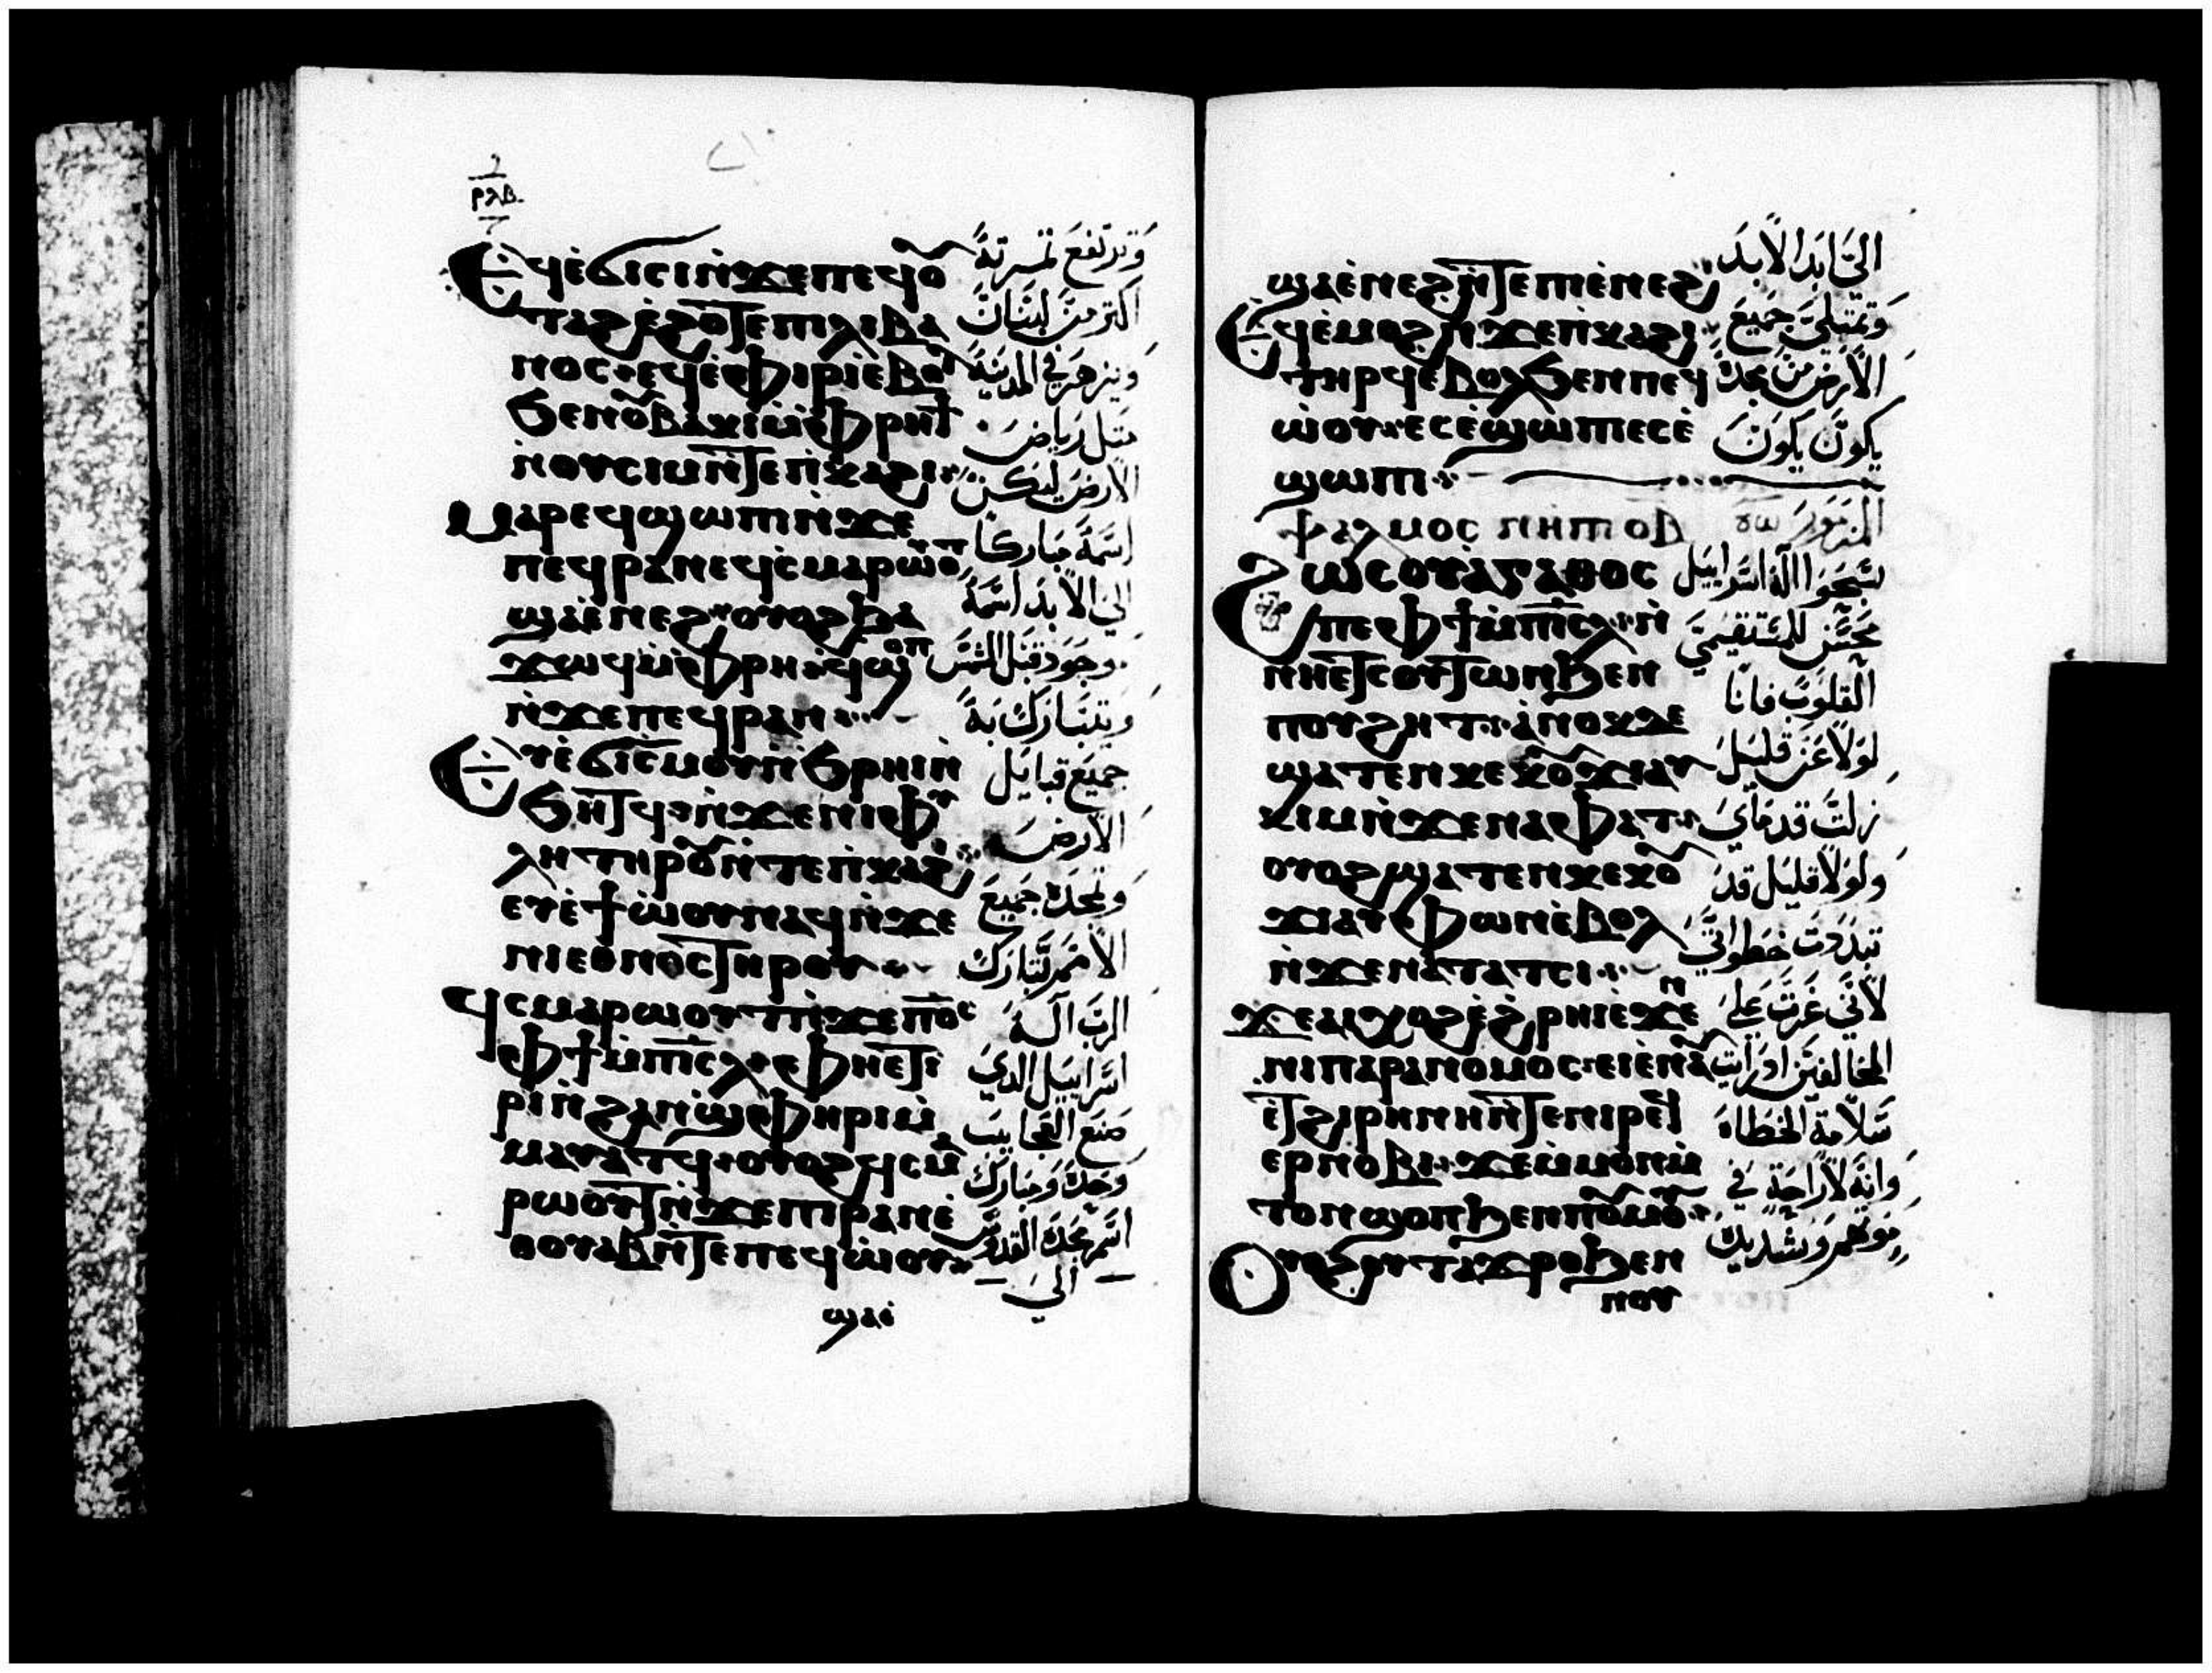 ⲣⲗⲃ
Ⲉϥⲉ̀ϭⲓⲥⲓⲛ̀ϫⲉⲡⲉϥⲟ̅
ⲧⲁϩⲉ̀ϩⲟⲧⲉⲡⲓⲗⲓⲃⲁ
ⲛⲟⲥ·ⲉϥⲉ̀ⲫⲓⲣⲓⲉ̀ⲃⲟⲗ
ϧⲉⲛⲟ̅ⲃⲁⲕⲓⲙ̀ⲫⲣⲏϯ
ⲛ̀ⲟⲩⲥⲓⲙⲛ̀ⲧⲉⲡ̀ⲕⲁϩⲓ
Ⲙⲁⲣⲉϥϣⲱⲡⲓⲛ̀ϫⲉ
ⲡⲉϥⲣⲁⲛⲉϥⲥ̀ⲙⲁⲣⲱⲟ̅ⲧ
ϣⲁⲉ̀ⲛⲉϩ·ⲟⲩⲟϩϧⲁ
ϫⲱϥⲙ̀ⲫⲣⲏ·ϥϣⲟⲡ
ⲛ̀ϫⲉⲡⲉϥⲣⲁⲛ
Ⲉⲩⲉ̀ϭⲓⲥⲙⲟⲩⲛ̀ϧⲣⲏⲓⲛ̀
ϧⲏⲧϥ·ⲛ̀ϫⲉⲛⲓⲫⲩ
ⲗⲏⲧⲏⲣⲟⲩⲛ̀ⲧⲉⲡ̀ⲕⲁϩⲓ
ⲉⲩⲉ̀ϯⲱ̀ⲟⲩⲛⲁϥⲛ̀ϫⲉ
ⲛⲓⲉⲑⲛⲟⲥⲧⲏⲣⲟⲩ
ϥⲥⲙⲁⲣⲱⲟⲩⲧⲛ̀ϫⲉⲡⲟ̅ⲥ
ⲫϯⲙ̀ⲡⲓⲥ̅ⲗ·ⲫⲏⲉⲧⲓ
ⲣⲓⲛ̀ϩⲁⲛϣ̀ⲫⲏⲣⲓⲙ̀
ⲙⲁⲩⲁⲧϥ·ⲟⲩⲟϩϥⲥⲙⲁ
ⲣⲱⲟⲩⲧⲛ̀ϫⲉⲡⲓⲣⲁⲛⲉ̀
ⲑⲟⲩⲁⲃⲛ̀ⲧⲉⲡⲉϥⲱ̀ⲟⲩ
ϣⲁⲉ̀
وترتفع تمرته
اكتر من لبنان
ويزهر في المدينة
متل رياض
الارض ليكن
اسمه مباركا
الي الابد اسمه
وجود قبل الشمس
ويتبارك به
جميع قبايل
الارض
وتمجده جميع
الامم تبارك
الرب اله
اسراييل الدي
صنع العجايب
وحده ومبارك
اسم مجده القدوس
الي
ϣⲁⲉ̀ⲛⲉϩⲛ̀ⲧⲉⲡⲓⲉ̀ⲛⲉϩ
Ⲉϥⲉ̀ⲙⲟϩⲛ̀ϫⲉⲡ̀ⲕⲁϩⲓ
ⲧⲏⲣϥⲉ̀ⲃⲟⲗϧⲉⲛⲡⲉϥ
ⲱ̀ⲟⲩ·ⲉⲥⲉ̀ϣⲱⲡⲓⲉⲥⲉ̀
ϣⲱⲡⲓ
ⲯⲁⲗⲙⲟⲥ ⲛⲏⲡ ⲟⲃ
Ϩⲱⲥⲟⲩⲁ̀ⲅⲁⲑⲟⲥ
ⲡⲉⲫϯⲙ̀ⲡⲓⲥ̅ⲗ·ⲛ̀
ⲛⲏⲉⲧⲥⲟⲩⲧⲱⲛϧⲉⲛ
ⲡⲟⲩϩⲏⲧ·ⲁ̀ⲛⲟⲕⲇⲉ
ϣⲁⲧⲉⲛⲕⲉⲕⲟⲩϫⲓⲁⲩ
ⲕⲓⲙⲛ̀ϫⲉⲛⲁⲫⲁⲧ·
ⲟⲩⲟϩϣⲁⲧⲉⲛⲕⲉⲕⲟⲩ
ϫⲓⲁⲩⲫⲱⲛⲉ̀ⲃⲟⲗ
ⲛ̀ϫⲉⲛⲁⲧⲁⲧⲥⲓ·
ϫⲉⲁⲓⲭⲟϩⲉ̀ϩⲣⲏⲓⲉ̀ϫⲉⲛ
ⲛⲓⲡⲁⲣⲁⲛⲟⲙⲟⲥ·ⲉⲓⲉ̀ⲛⲁⲩ
ⲉ̀ⲧϩⲓⲣⲏⲛⲏⲛ̀ⲧⲉⲛⲓⲣⲉϥ
ⲉⲣⲛⲟⲃⲓ·ϫⲉⲙ̀ⲙⲟⲛⲙ̀
ⲧⲟⲛϣⲟⲡϧⲉⲛⲡⲟⲩⲙⲟⲩ
Ⲟⲩⲟϩⲟⲩⲧⲁϫⲣⲟϧⲉⲛ
ⲡⲟⲩ
الي ابد الابد
وتمتلي جميع
الارض من مجده
يكون يكون
المزمور
نحوا اله اسراييل
متحنن للمستقيمي
القلوب فانا
لولا عن قليل
زلت قدماي
ولولا قليل قد
تبددت خطواتي
لاني غرت علي
المخالفين اد رايت
سلامة الخطاه
وانه لا راحة في
موتهم وتشديد